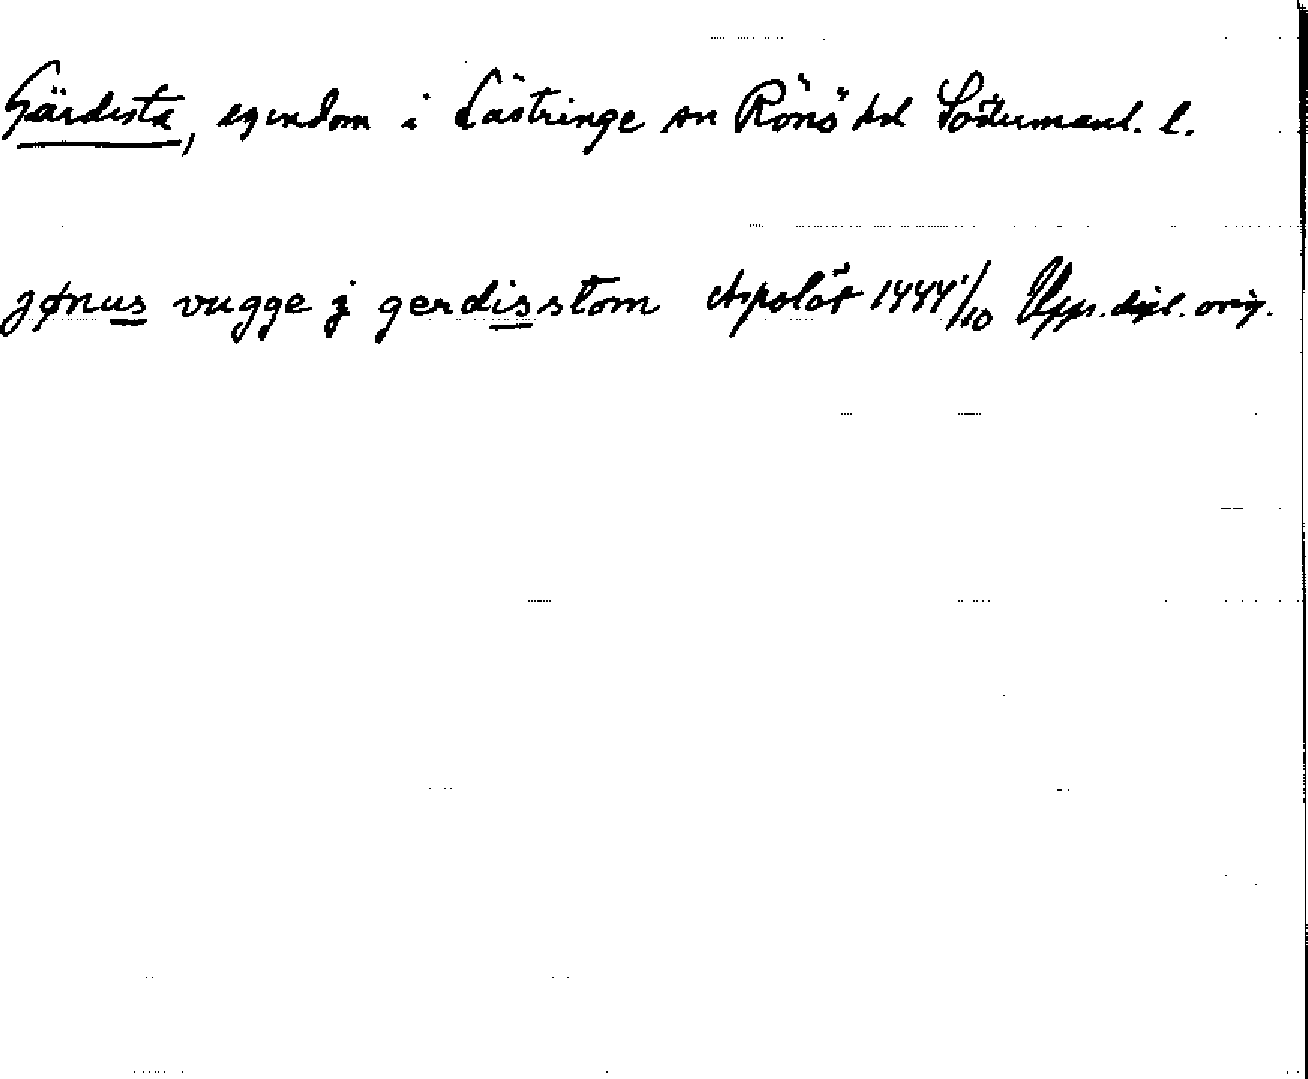 Gärdesta, egendom i Lästringe sn Rönö hd Södermanl. l.
jønus vugge j gerdisstom Aspolöt 1444 1/10 Upps. dipl. orig.